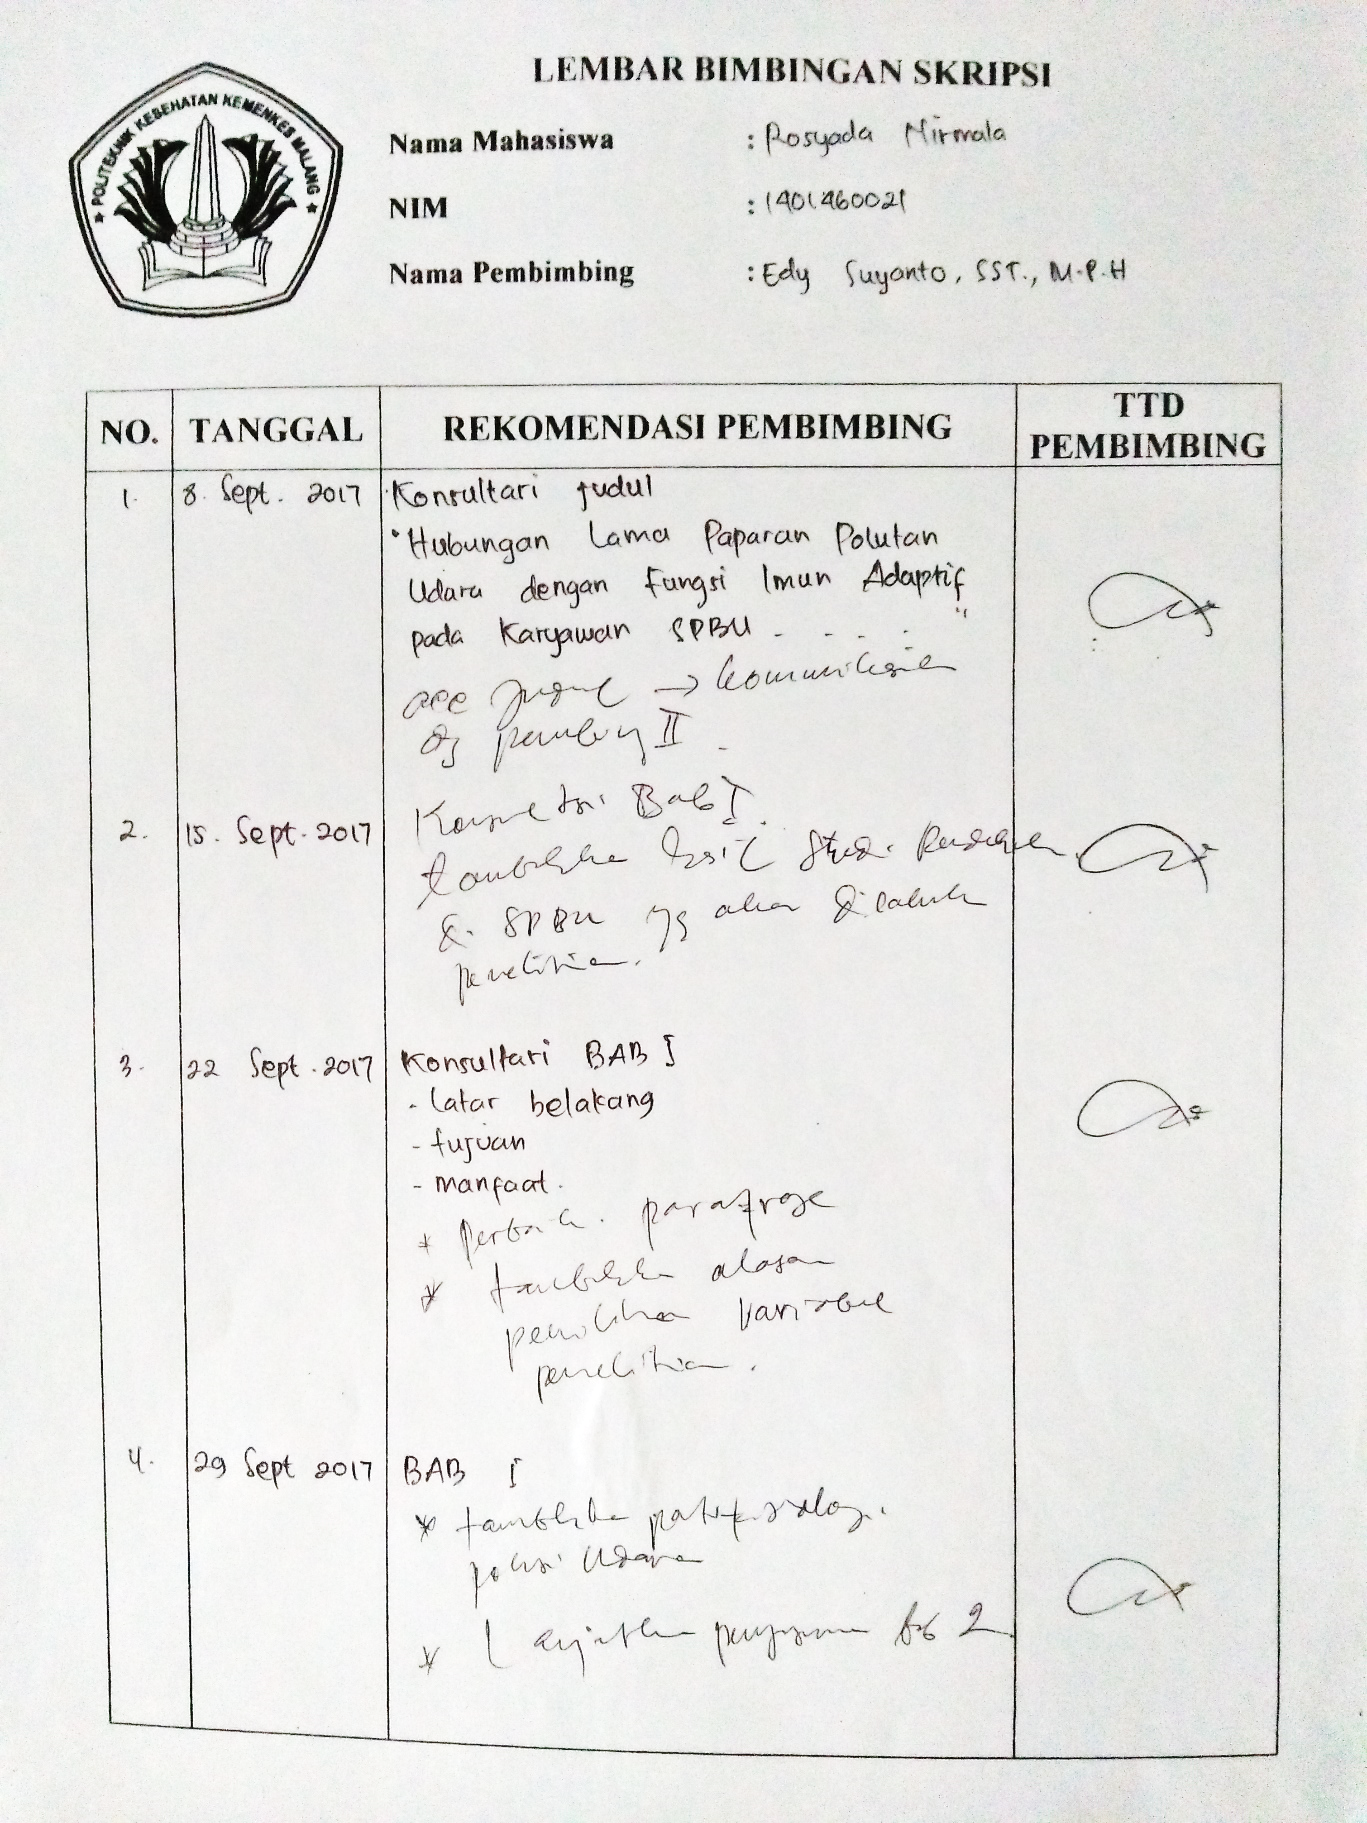 LEMBAR BIMBINGAN SKRIPSI
★ POLITEKNIK KESEHATAN KEMENKES MALANG ★
Nama Mahasiswa : Rosyada Nirmala
NIM : 1401460021
Nama Pembimbing : Edy Suyanto, SST., M.P.H
NO. TANGGAL REKOMENDASI PEMBIMBING TTD PEMBIMBING
1. 8. Sept. 2017 Konsultasi Judul
"Hubungan Lama Paparan Polutan
Udara dengan Fungsi Imun Adaptif
pada Karyawan SPBU . . . . . "
acc judul → komunikasikan
dg pembimbing II.
2. 15. Sept. 2017 Konsultasi Bab I.
tambahkan hasil Studi Pendahuluan
di SPBU yg akan dilakukan
penelitian.
3. 22 Sept. 2017 Konsultasi BAB I
- latar belakang
- tujuan
- manfaat.
* perbaiki parafrase
* tambahkan alasan
pemilihan variabel
penelitian.
4. 29 Sept 2017 BAB I
* tambahkan patofisiologi
polusi udara
* Lanjutkan penyusunan bab 2